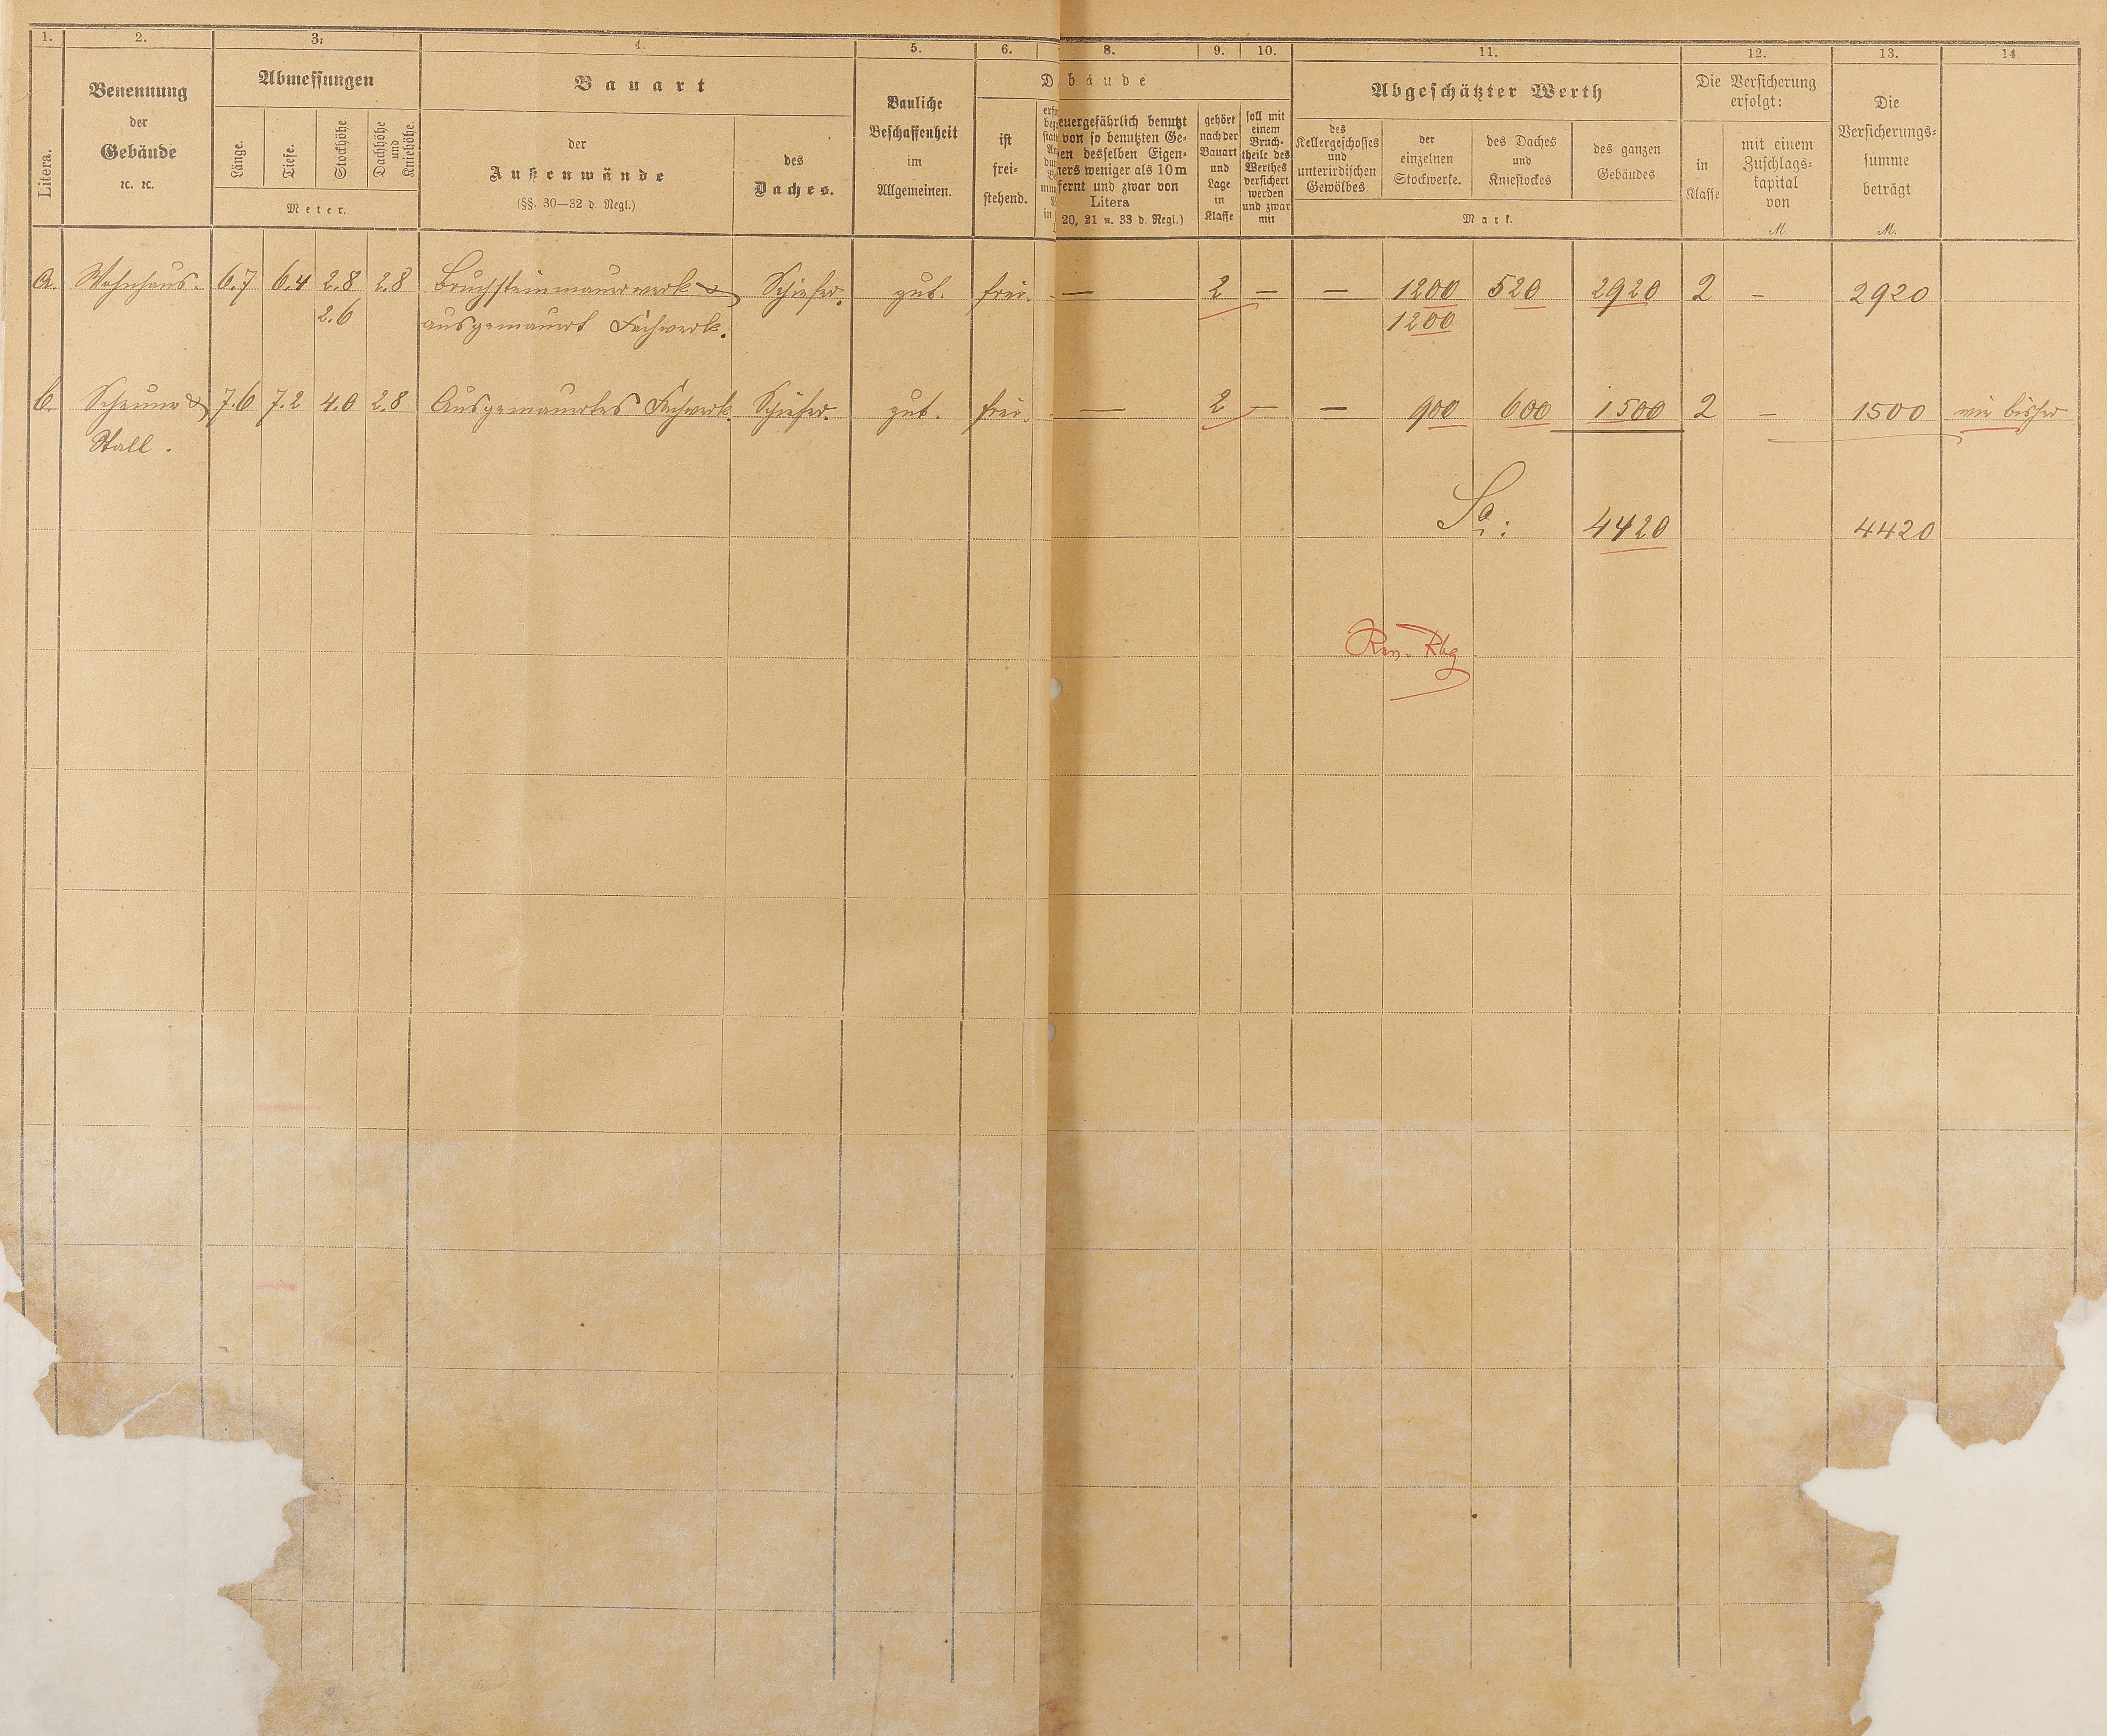 1. 2. 3. 4. 5. 6. 8. 9. 10. 11. 12. 13. 14
Litera.
Benennung
der
Gebäude
ꝛc. ꝛc.
Abmessungen
Länge.
Tiefe.
Stockhöhe.
Dachhöhe
und
Kniehöhe.
Meter.
Bauart
der
Außenwände
(§§. 30—32 d. Regl.)
des
Daches.
Bauliche
Beschaffenheit
im
Allgemeinen.
ist
frei-
stehend.
bäude
feuergefährlich benutzt
von so benutzten Ge-
en desselben Eigen-
ners weniger als 10 m
fernt und zwar von
Litera
20, 21 u. 33 d. Regl.)
gehört
nach der
Bauart
und
Lage
in
Klasse
soll mit
einem
Bruch-
theile des
Werthes
versichert
werden
und zwar
mit
Abgeschätzter Werth
des
Kellergeschosses
und
unterirdischen
Gewölbes
der
einzelnen
Stockwerke.
des Daches
und
Kniestockes
des ganzen
Gebäudes
Mark.
Die Versicherung
erfolgt:
in
Klasse
mit einem
Zuschlags-
kapital
von
M.
Die
Versicherungs-
summe
beträgt
M.
a. Wohnhaus. 6.7 6.4 2.8 2.8 Bruchsteinmauerwerk & Schiefer. gut. frei. — 2 — — 1200 520 2920 2 — 2920
2.6 ausgemauert Fachwerk. 1200
b. Scheune & 7.6 7.2 4.0 2.8 Ausgemauertes Fachwerk. Schiefer. gut. frei. — 2 — — 900 600 1500 2 — 1500 wie bisher
Stall.
Sa: 4420 4420